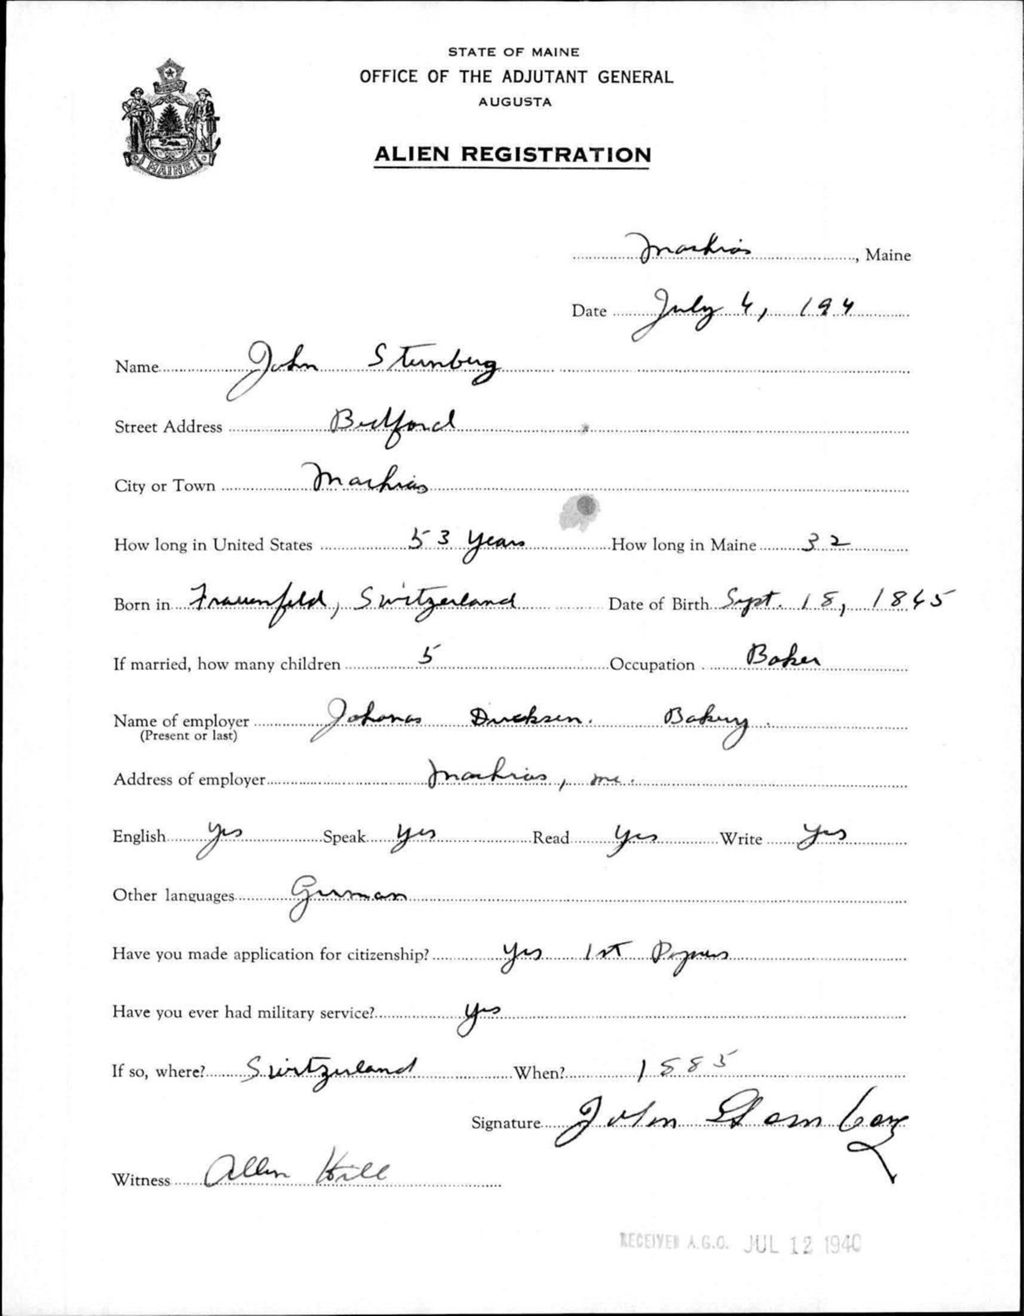 STATE OF MAINE
OFFICE OF THE ADJUTANT GENERAL
AUGUSTA
ALIEN REGISTRATION
MAINE
Machias, Maine
Date July 4, 194
Name John Sternberg
Street Address Bedford
City or Town Machias
How long in United States 53 Years How long in Maine 32
Born in Frauenfeld, Switzerland Date of Birth Sept. 18, 1865
If married, how many children 5 Occupation Baker
Name of employer Johanas Dircksen. Bakery.
(Present or last)
Address of employer Machias, me.
English Yes Speak Yes Read Yes Write Yes
Other languages German
Have you made application for citizenship? Yes 1st Papers
Have you ever had military service? Yes
If so, where? Switzerland When? 1885
Signature John
Witness Allen Hill
RECEIVED A.G.O. JUL 12 1940